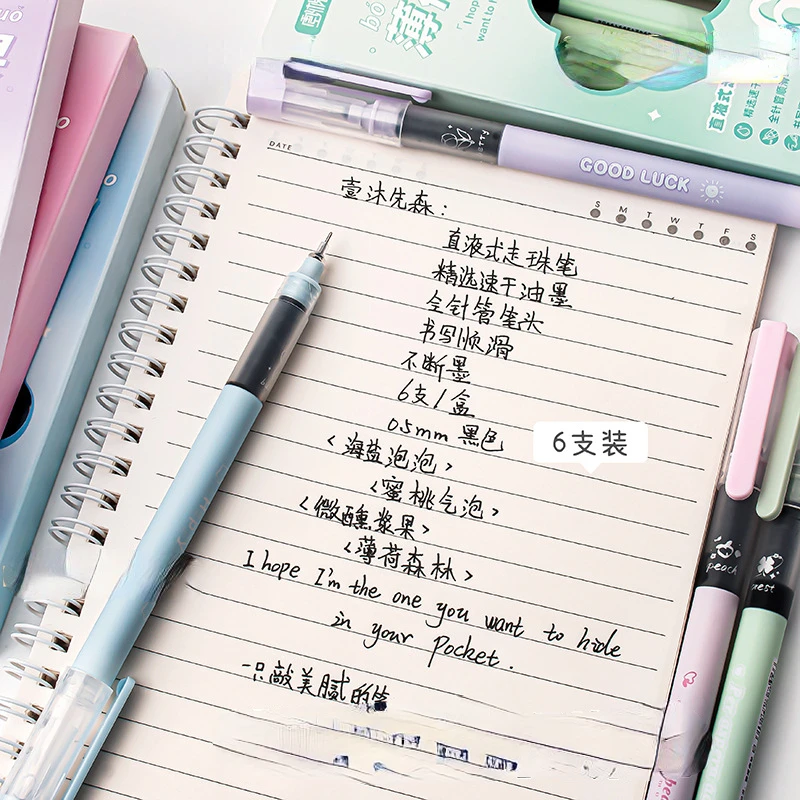 薄荷
"I hop
want to h
直液式走
精选速干
全针管顺滑
GOOD LUCK
DATE
S M T W T F S
壹沐先森：
直液式走珠笔
精选速干油墨
全针管笔头
书写顺滑
不断墨
6支1盒
0.5mm 黑色
6支装
<海盐泡泡>
<蜜桃气泡>
<微醺浆果>
<薄荷森林>
I hope I'm the one you want to hide
in your Pocket.
一只敲美腻的笔
peach
rest